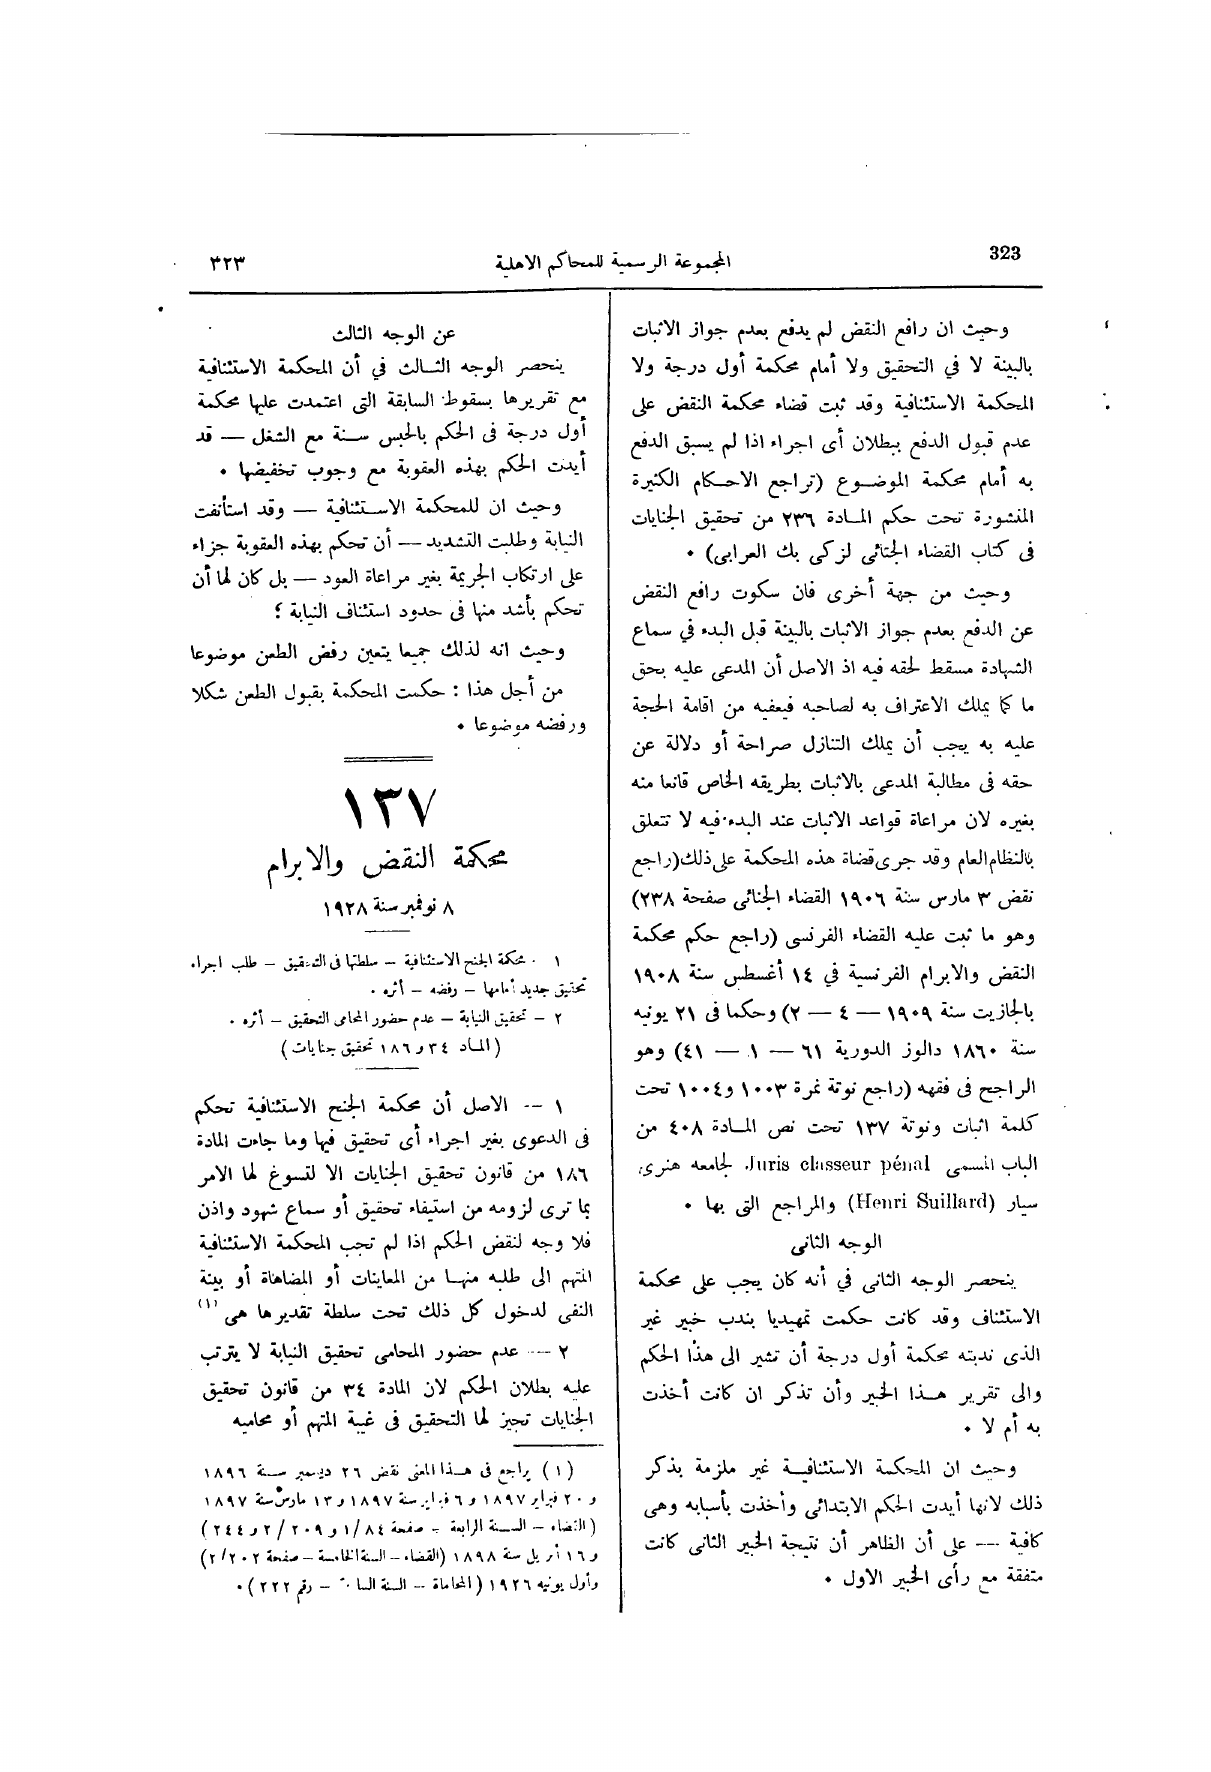 323
المجموعة الرسمية للمحاكم الاهلية
٣٢٣
وحيث ان رافع النقض لم يدفع بعدم جواز الاثبات
بالبينة لا في التحقيق ولا أمام محكمة أول درجة ولا
المحكمة الاستئنافية وقد ثبت قضاء محكمة النقض على
عدم قبول الدفع ببطلان أى اجراء اذا لم يسبق الدفع
به أمام محكمة الموضوع (تراجع الاحكام الكثيرة
المنشورة تحت حكم المادة ٢٣٦ من تحقيق الجنايات
فى كتاب القضاء الجنائى لزكى بك العرابى) ٠
وحيث من جهة أخرى فان سكوت رافع النقض
عن الدفع بعدم جواز الاثبات بالبينة قبل البدء في سماع
الشهادة مسقط لحقه فيه اذ الاصل أن المدعى عليه بحق
ما كما يملك الاعتراف به لصاحبه فيعفيه من اقامة الحجة
عليه به يجب أن يملك التنازل صراحة أو دلالة عن
حقه فى مطالبة المدعى بالاثبات بطريقه الخاص قانعا منه
بغيره لان مراعاة قواعد الاثبات عند البدء فيه لا تتعلق
بالنظام العام وقد جرى قضاة هذه المحكمة على ذلك (راجع
نقض ٣ مارس سنة ١٩٠٦ القضاء الجنائى صفحة ٢٣٨)
وهو ما ثبت عليه القضاء الفرنسى (راجع حكم محكمة
النقض والابرام الفرنسية في ١٤ أغسطس سنة ١٩٠٨
بالجازيت سنة ١٩٠٩ — ٤ — ٢) وحكما فى ٢١ يونيه
سنة ١٨٦٠ دالوز الدورية ٦١ — ١ — ٤١) وهو
الراجح فى فقهه (راجع نوتة نمرة ١٠٠٣ و١٠٠٤ تحت
كلمة اثبات ونوتة ١٣٧ تحت نص المادة ٤٠٨ من
الباب المسمى Juris classeur pénal لجامعه هنرى
سيار (Henri Suillard) والمراجع التى بها ٠
الوجه الثانى
ينحصر الوجه الثانى في أنه كان يجب على محكمة
الاستئناف وقد كانت حكمت تمهيديا بندب خبير غير
الذى ندبته محكمة أول درجة أن تشير الى هذا الحكم
والى تقرير هذا الخبير وأن تذكر ان كانت أخذت
به أم لا ٠
وحيث ان المحكمة الاستئنافية غير ملزمة بذكر
ذلك لانها أيدت الحكم الابتدائى وأخذت بأسبابه وهى
كافية — على أن الظاهر أن نتيجة الخبير الثانى كانت
متفقة مع رأى الخبير الاول ٠
عن الوجه الثالث
ينحصر الوجه الثالث في أن المحكمة الاستئنافية
مع تقريرها بسقوط السابقة التى اعتمدت عليها محكمة
أول درجة فى الحكم بالحبس سنة مع الشغل — قد
أيدت الحكم بهذه العقوبة مع وجوب تخفيضها ٠
وحيث ان للمحكمة الاستئنافية — وقد استأنفت
النيابة وطلبت التشديد — أن تحكم بهذه العقوبة جزاء
على ارتكاب الجريمة بغير مراعاة العود — بل كان لها أن
تحكم بأشد منها فى حدود استئناف النيابة ؛
وحيث انه لذلك جميعا يتعين رفض الطعن موضوعا
من أجل هذا : حكمت المحكمة بقبول الطعن شكلا
ورفضه موضوعا ٠
١٣٧
محكمة النقض والابرام
٨ نوفمبر سنة ١٩٢٨
١ ٠ محكمة الجنح الاستئنافية – سلطتها فى التحقيق – طلب اجراء
تحقيق جديد أمامها – رفضه – أثره ٠
٢ – تحقيق النيابة – عدم حضور المحامى التحقيق – أثره ٠
(الماد ٣٤ و ١٨٦ تحقيق جنايات)
١ –- الاصل أن محكمة الجنح الاستئنافية تحكم
فى الدعوى بغير اجراء أى تحقيق فيها وما جاءت المادة
١٨٦ من قانون تحقيق الجنايات الا لتسوغ لها الامر
بما ترى لزومه من استيفاء تحقيق أو سماع شهود واذن
فلا وجه لنقض الحكم اذا لم تجب المحكمة الاستئنافية
المتهم الى طلبه منها من المعاينات أو المضاهاة أو بينة
النفى لدخول كل ذلك تحت سلطة تقديرها هى (١)
٢ –-- عدم حضور المحامى تحقيق النيابة لا يترتب
عليه بطلان الحكم لان المادة ٣٤ من قانون تحقيق
الجنايات تجيز لها التحقيق فى غيبة المتهم أو محاميه
(١) يراجع فى هذا المعنى نقض ٢٦ ديسمبر سنة ١٨٩٦
و ٢٠ فبراير ١٨٩٧ و ٦ فبراير سنة ١٨٩٧ و ١٣ مارس سنة ١٨٩٧
(القضاء – السنة الرابعة – صفحة ١/٨٤ و ٢/٢٠٩ و ٢٤٤)
و ١٦ أبريل سنة ١٨٩٨ (القضاء – السنة الخامسة – صفحة ٢/٢٠٢)
وأول يونيه ١٩٢٦ (المحاماة – السنة – رقم ٢٢٢) ٠